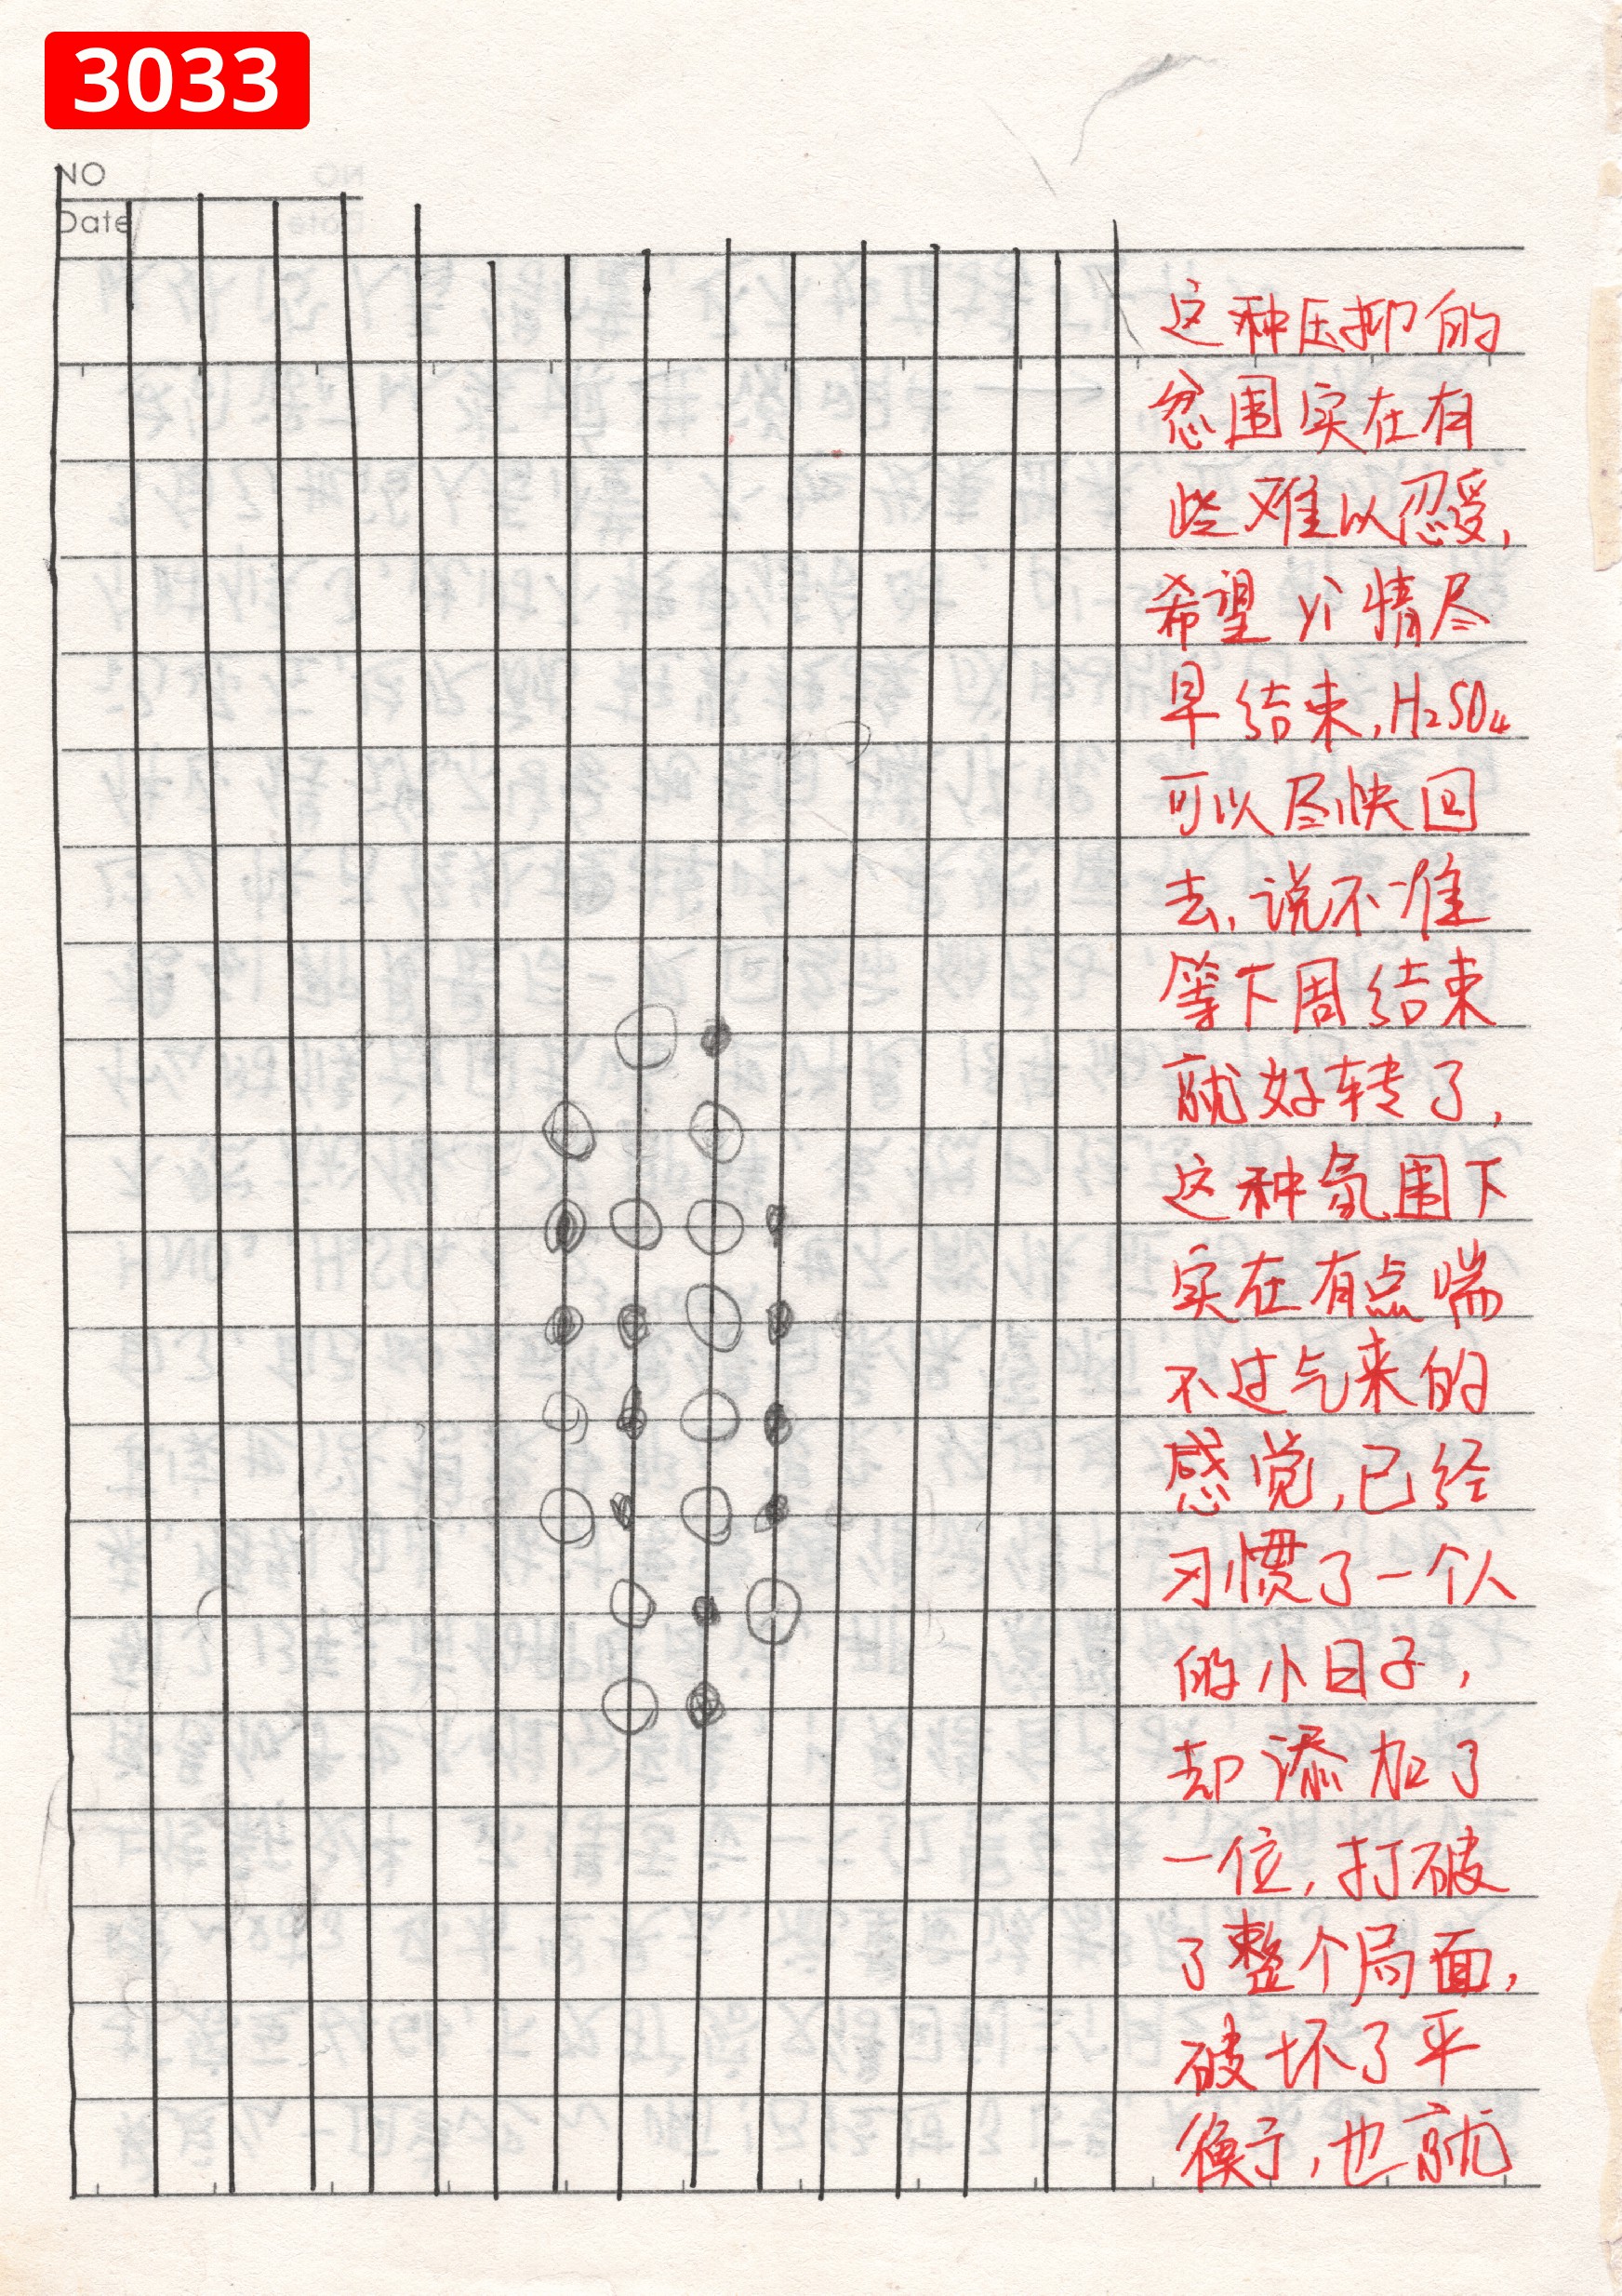 3033
NO
Date
这种压抑的
忿围实在有
些难以忍受,
希望yi情尽
早结束,H₂SO₄
可以尽快回
去,说不准
等下周结束
就好转了,
这种氛围下
实在有点喘
不过气来的
感觉,已经
习惯了一个人
的小日子,
却添加了
一位,打破
了整个局面,
破坏了平
衡,也就